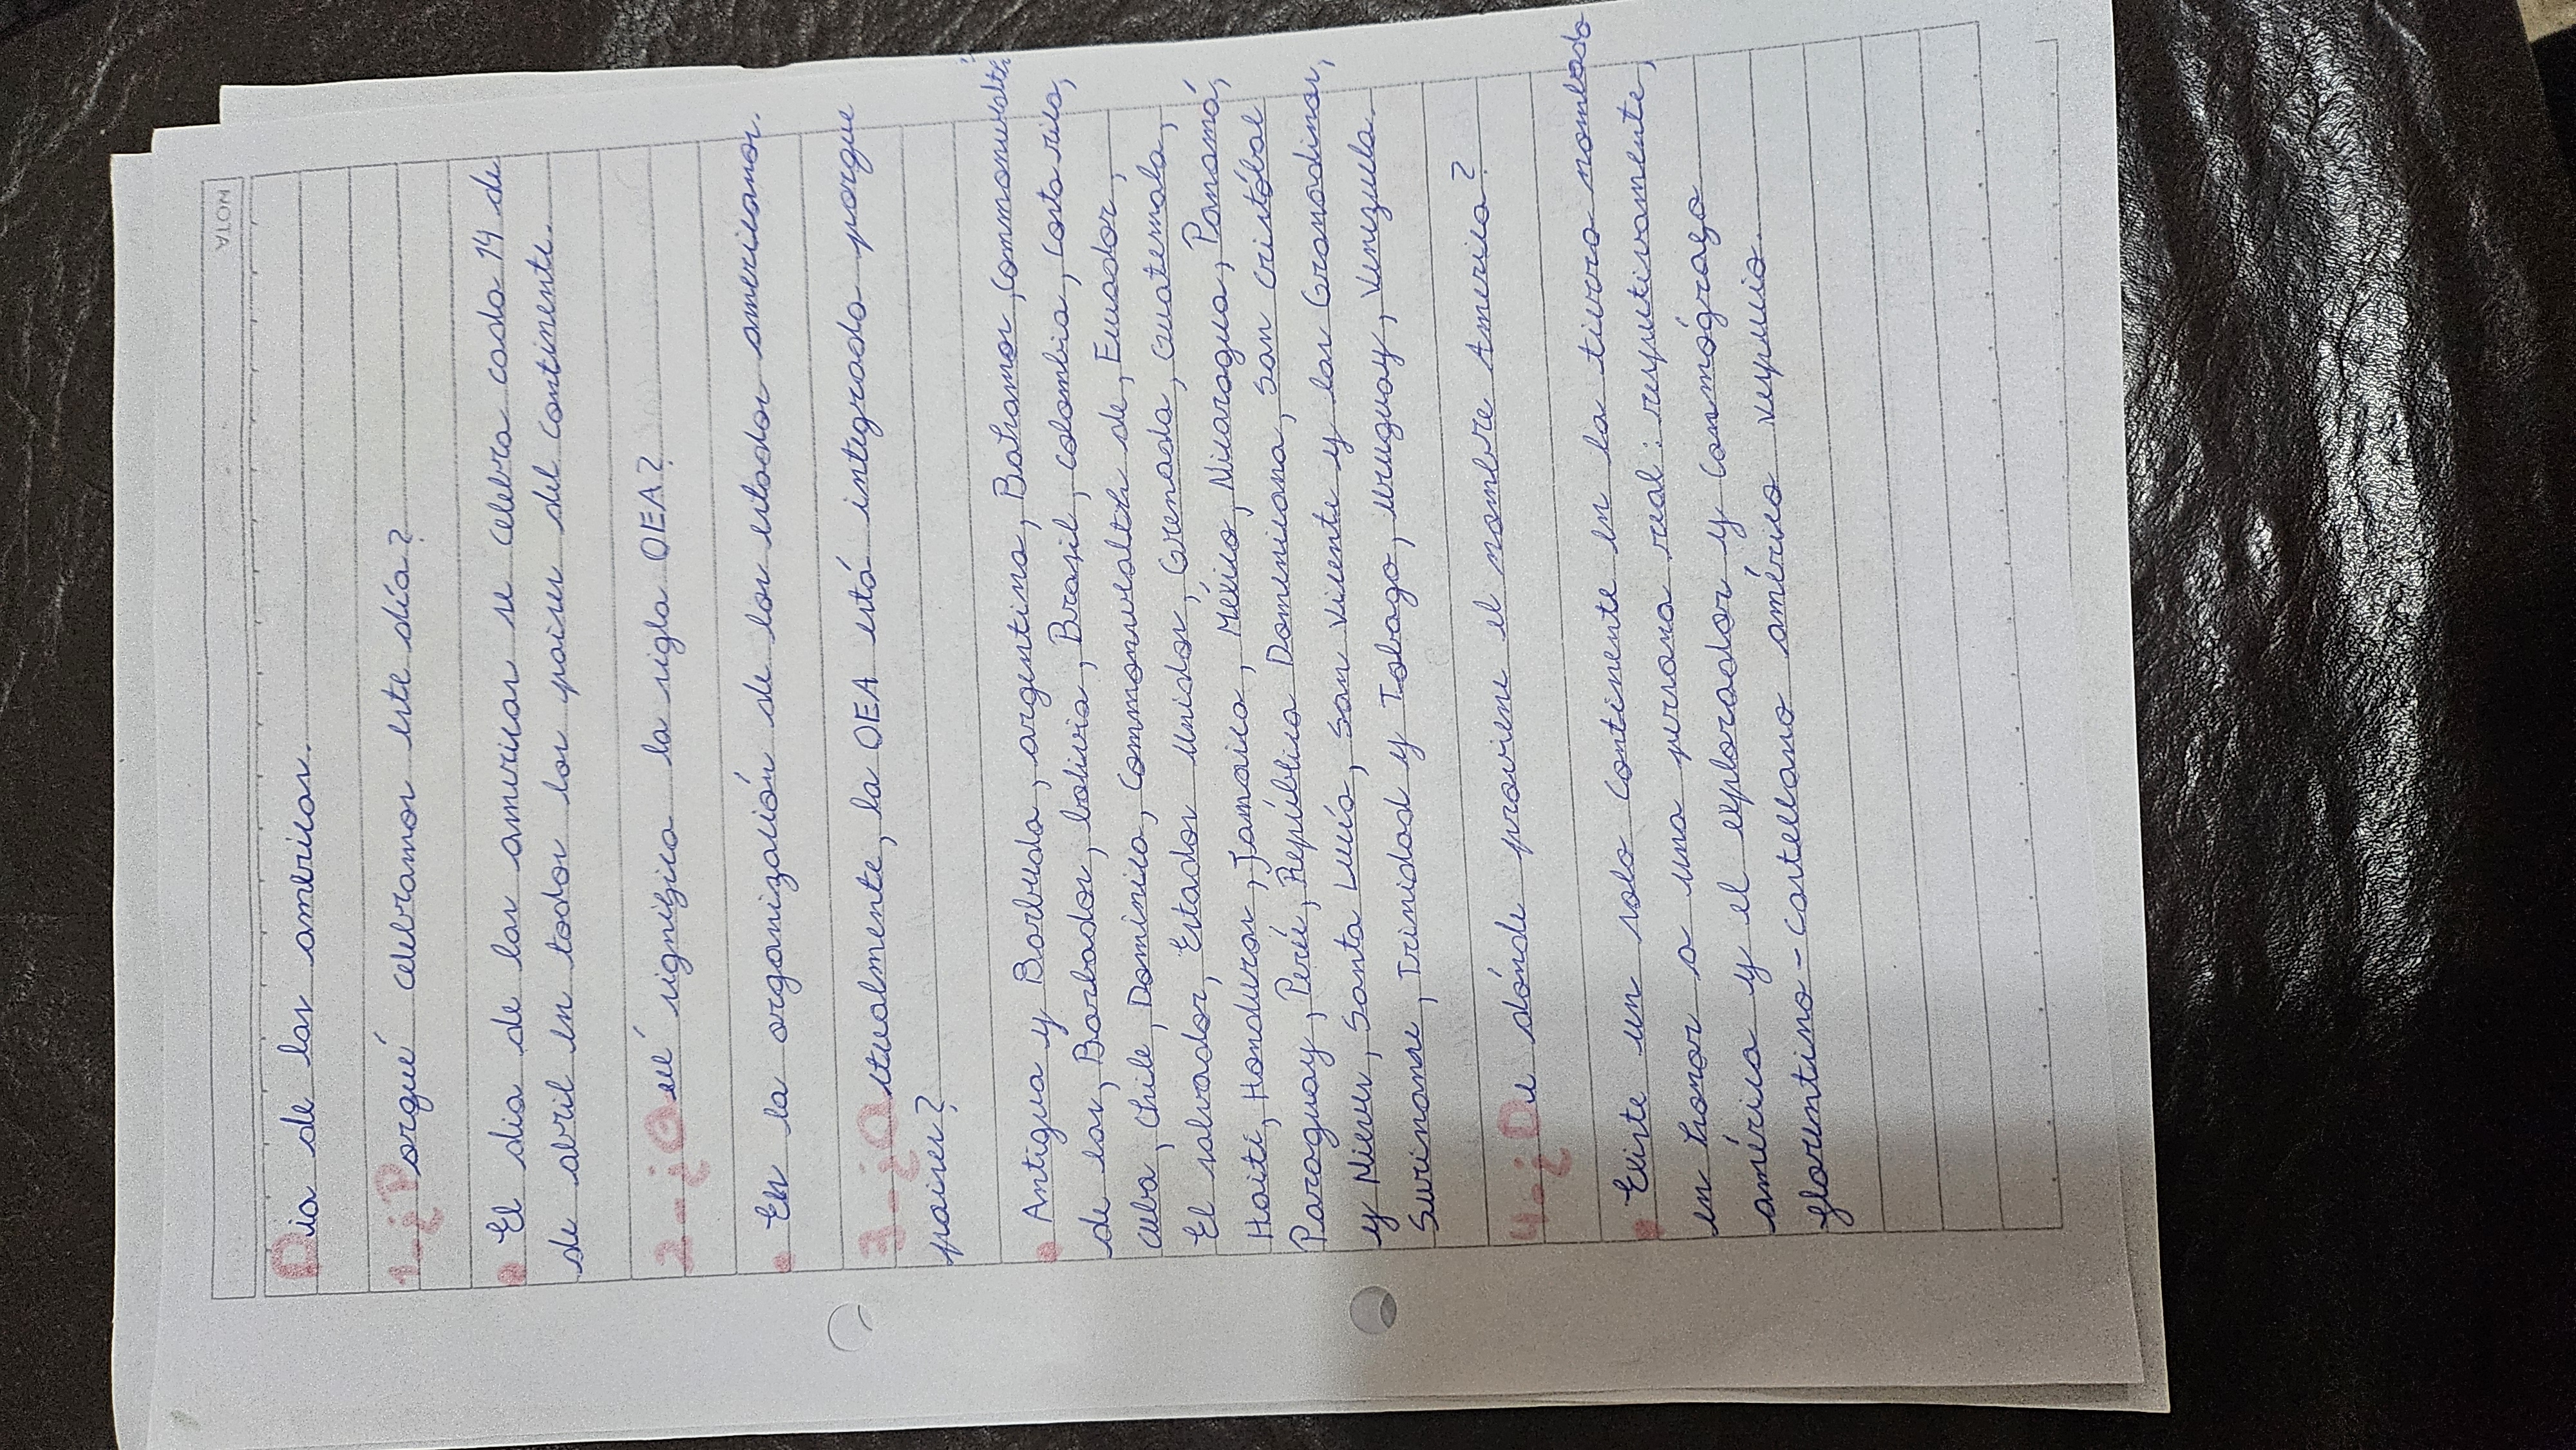 NOTA
Dia de las américas.
1-¿Porqué celebramos este día?
• El dia de las americas se celebra cada 14 de
de abril en todos los paises del continente.
2-¿Qué significa la sigla OEA?
• En la organización de los estados americanos.
3-¿Actualmente, la OEA está integrada porque
paises?
• Antigua y Barbuda, argentina, Bahamas, Commonwealth
de las, Barbados, bolivia, Brasil, colombia, Costa rica,
cuba, chile, Dominica, Commonwealth de, Ecuador,
El salvador, Estados Unidos, Grenada, Guatemala,
Haití, Honduras, Jamaica, México, Nicaragua, Panamá,
Paraguay, Perú, República Dominicana, San Cristóbal
y Nieves, Santa Lucía, San Vicente y las Granadinas,
Suriname, Trinidad y Tobago, uruguay, Venezuela
4-¿De dónde proviene el nombre America?
• Existe un solo continente en la tierra nombrado
en honor a una persona real: respectivamente,
américa y el explorador y cosmógrafo
florentino-castellano américo vespucio.